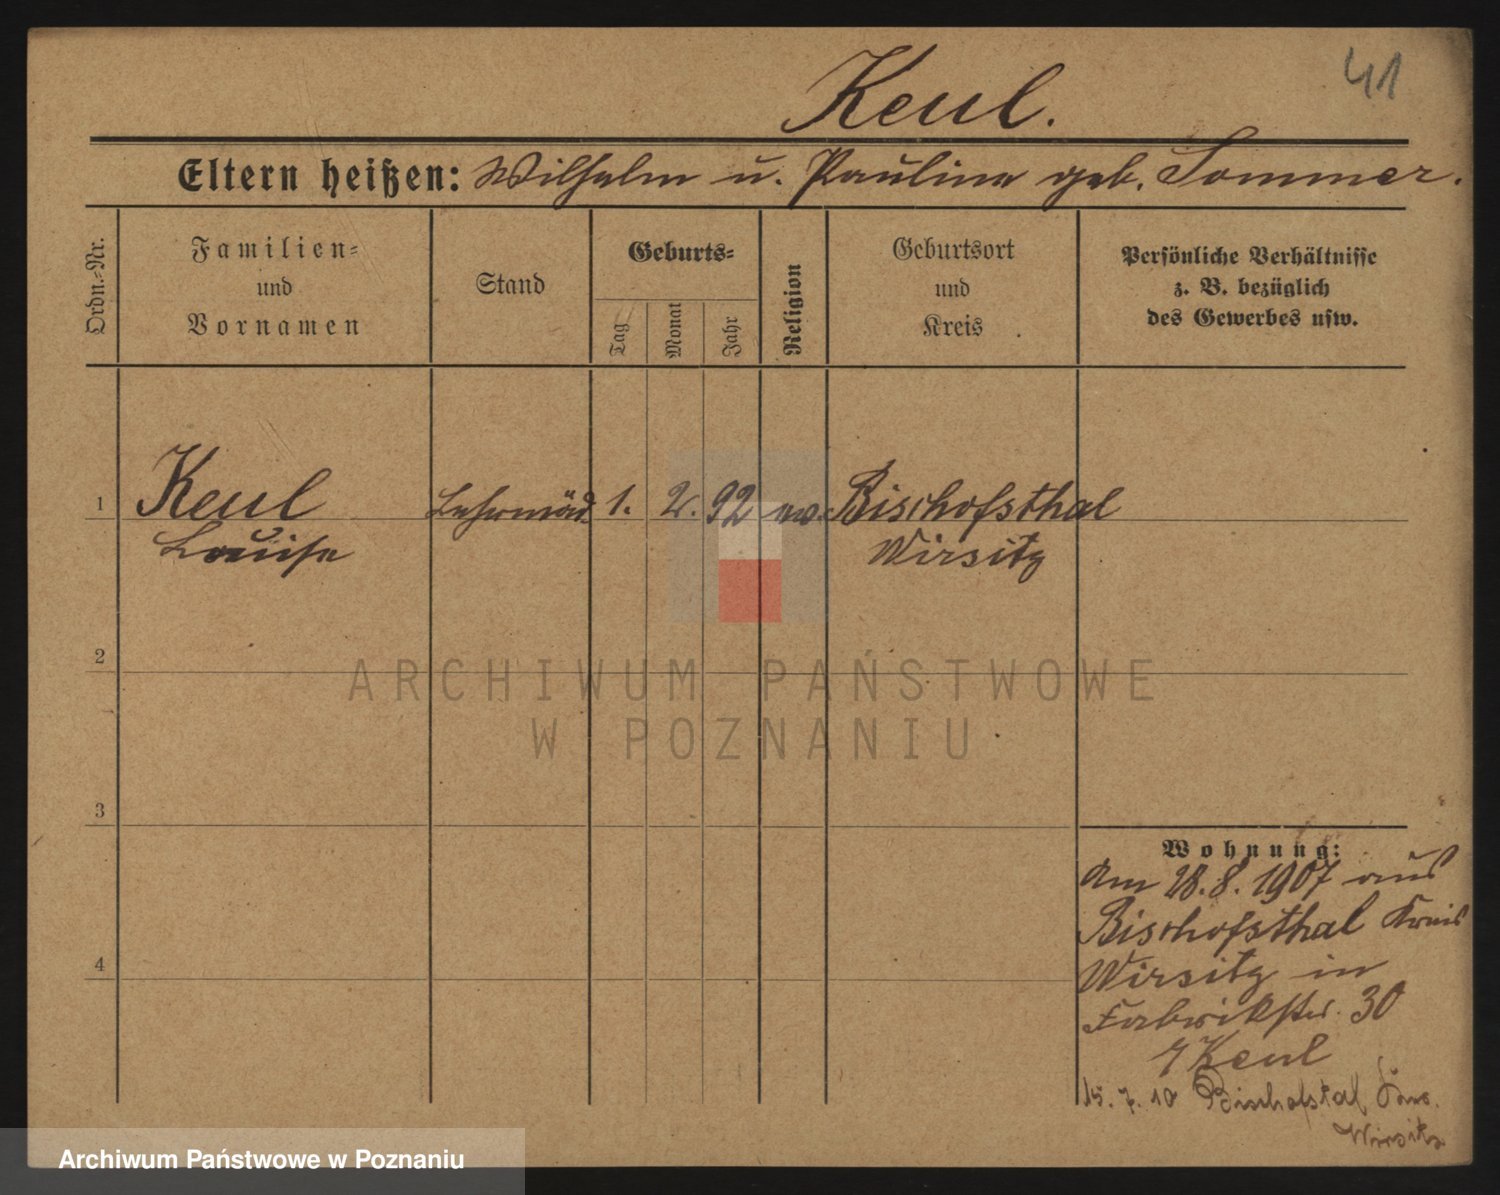 41
Keul.
Eltern heißen: Wilhelm u. Pauline geb. Sommer.
Ordn.-Nr.
Familien-
und
Vornamen
Stand
Geburts-
Tag
Monat
Jahr
Religion
Geburtsort
und
Kreis
Persönliche Verhältnisse
z. B. bezüglich
des Gewerbes usw.
1 Keul Lehrmäd. 1. 2. 92 ev. Bischofsthal
Louise Wirsitz
2
ARCHIWUM PAŃSTWOWE
W POZNANIU
3
Wohnung:
Am 28.8.1907 aus
Bischofsthal Kreis
4
Wirsitz in
Fabrikstr. 30
Keul
15.7.10 Bischofstal Krs.
Wirsitz
Archiwum Państwowe w Poznaniu